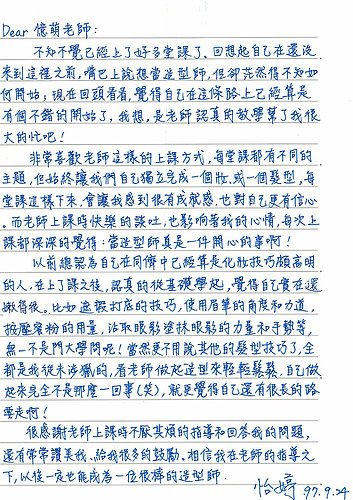 Dear 億萌老師:
不知不覺已經上了好多堂課了。回想起自己在還沒
來到這裡之前,嘴巴上說想當造型師,但卻茫然得不知如
何開始;現在回頭看看,覺得自己在這條路上已經算是
有個不錯的開始了,我想,是老師認真的教學幫了我很
大的忙吧!
非常喜歡老師這樣的上課方式,每堂課都有不同的
主題,但始終讓我們自己獨立完成一個妝、或一個髮型,每
堂課這樣下來,會讓我感到很有成就感,也對自己更有信心
。而老師上課時快樂的談吐,也影響著我的心情,每次上
課都深深的覺得:當造型師真是一件開心的事啊!
以前總認為自己在同儕中已經算是化妝技巧頗高明
的人,在上了課之後,認真的從基礎學起,覺得自己實在還
嫩得很。比如遮瑕打底的技巧,使用眉筆的角度和力道,
按壓蜜粉的用量,沾取眼影塗抹眼影的力量和手勢等,
無一不是門大學問呢!當然更不用說其他的髮型技巧了,全
都是我從未涉獵的,看老師做起造型來輕輕鬆鬆,自己做
起來完全不是那麼一回事(笑),就更覺得自己還有很長的路
要走啊!
很感謝老師上課時不厭其煩的指導和回答我的問題,
還有常常讚美我、給我很多的鼓勵。相信我在老師的指導之
下,以後一定也能成為一位很棒的造型師。
怡婷 97.9.24